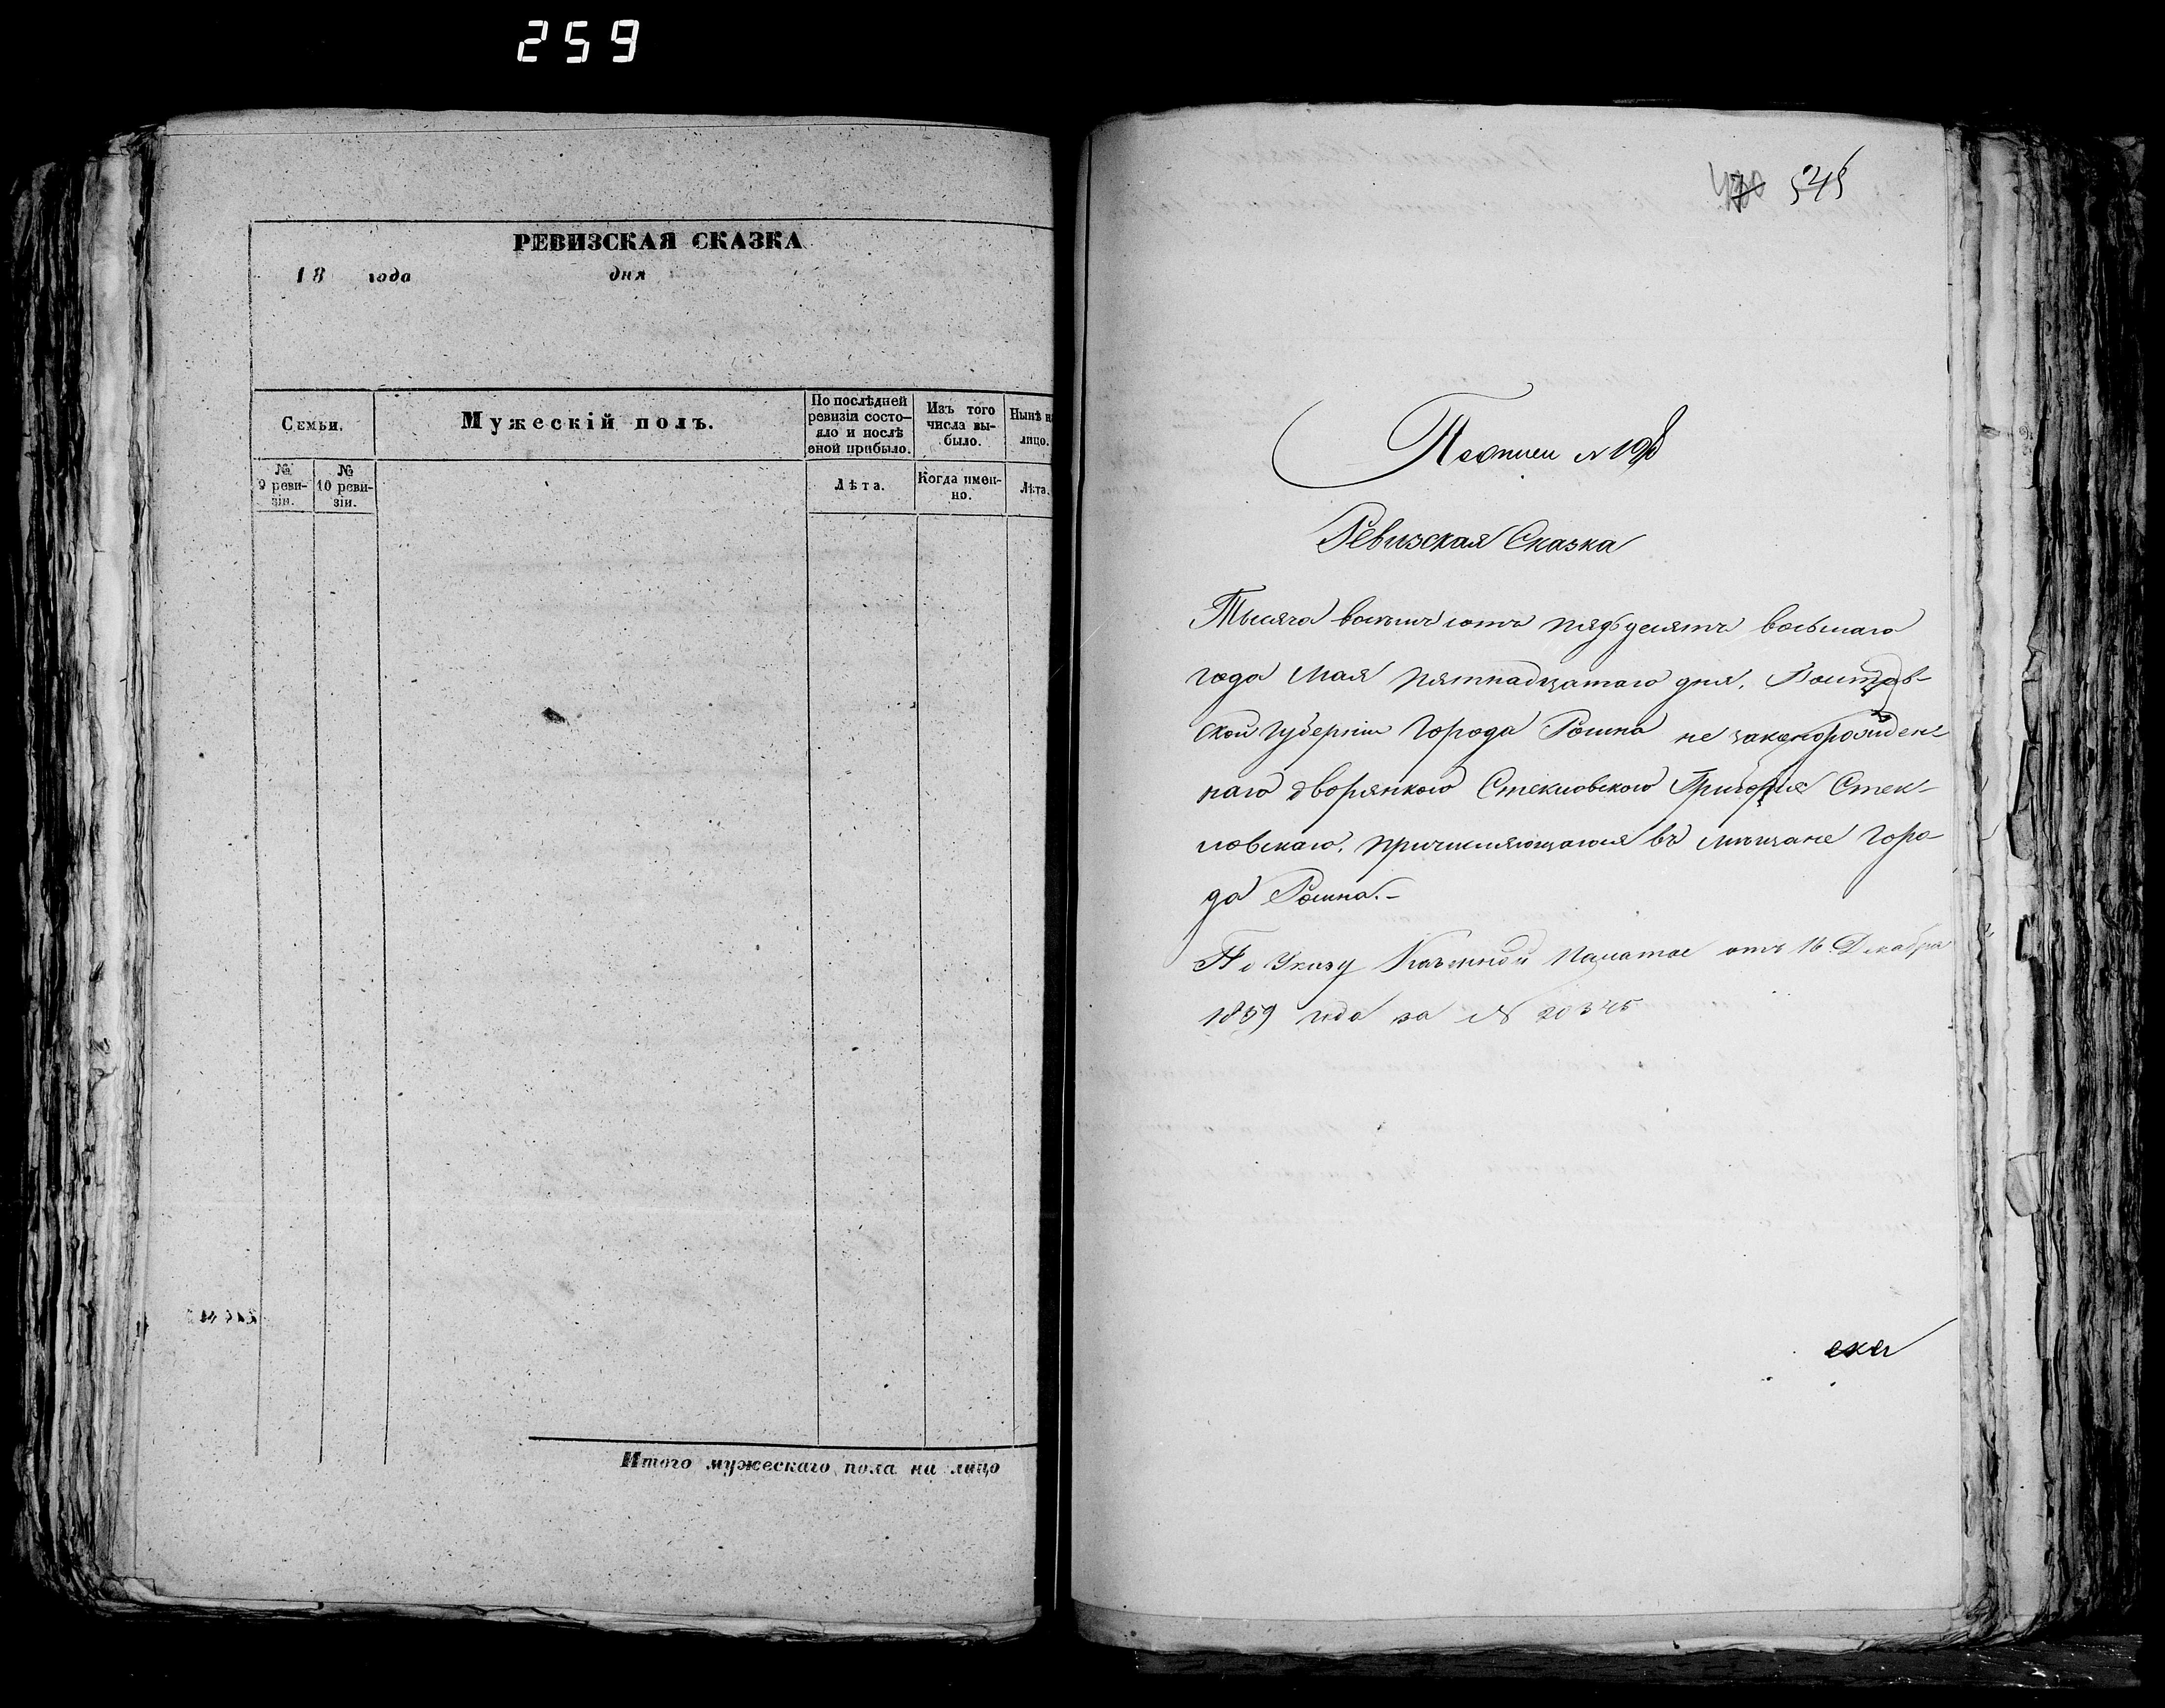 259
РЕВИЗСКАЯ СКАЗКА
18 года дня
Семьи.
Мужескій полъ.
По послѣдней ревизіи состо-
яло и послѣ
оной прибыло.
Изъ того
числа вы-
было.
Нынѣ на
лицо.
№ 9 реви-
зіи.
№ 10 реви-
зіи.
Лѣта.
Когда имен-
но.
Лѣта.
Итого мужескаго пола на лицо
545
По описи № 198
Ревизская Сказка
Тысяча восемь сотъ пядьдесятъ восьмаго
года Мая пятнадцатаго дня, Полтав-
ской губерніи города Ромна не законорожден-
наго дворянкою Стекловскою Григорія Стек-
ловскаго, причисляющагося въ мѣщане горо-
да Ромна.-
По Указу Казенной Палаты отъ 16 Декабря
1859 года за № 20345